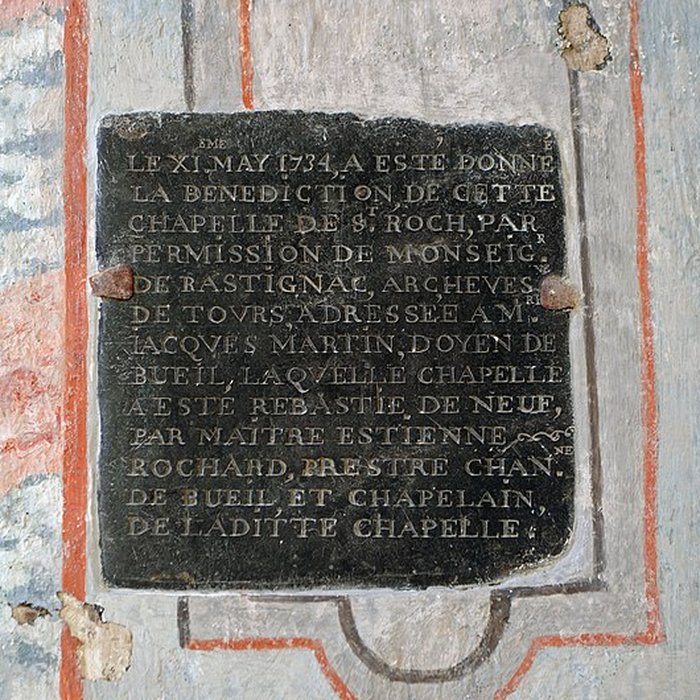 LE XI.EME MAY 1734, A ESTE DONNEE
LA BENEDICTION, DE CETTE
CHAPELLE DE ST. ROCH, PAR
PERMISSION DE MONSEIGR.
DE RASTIGNAC, ARCHEVESQVE
DE TOVRS, ADRESSEE A MR.
IACQVES MARTIN, DOYEN DE
BUEIL, LAQVELLE CHAPELLE
A ESTE REBASTIE DE NEUF,
PAR MAITRE ESTIENNE
ROCHARD, PRESTRE CHANNE.
DE BUEIL, ET CHAPELAIN,
DE LADITTE CHAPELLE.